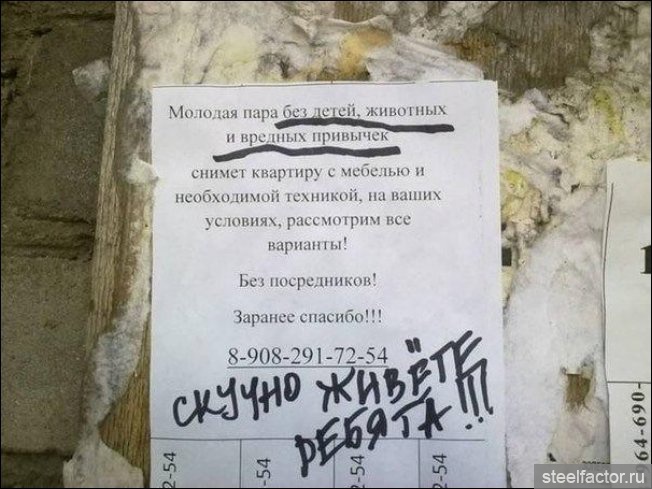 Молодая пара без детей, животных
и вредных привычек
снимет квартиру с мебелью и
необходимой техникой, на ваших
условиях, рассмотрим все
варианты!
Без посредников!
Заранее спасибо!!!
8-908-291-72-54
СКУЧНО ЖИВЁТЕ
РЕБЯТА!!!
2-54
-54
2-54
-54
964-690-
steelfactor.ru